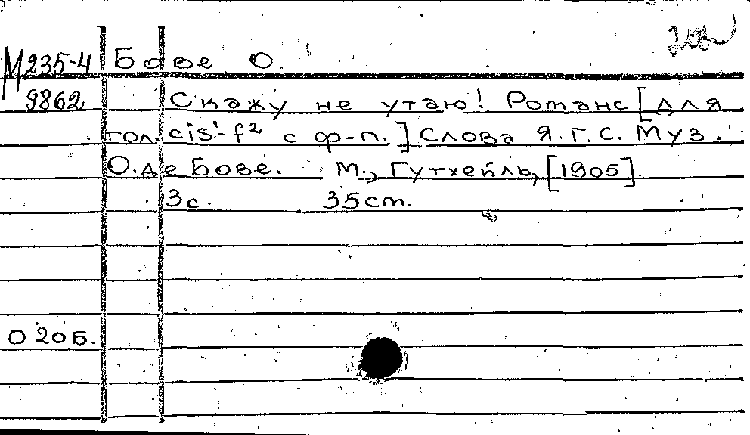 М235-4 Бове О.
9862 Скажу не утаю! Романс [для
гол. cis¹-f² с ф-п.] Слова Я.Г.С. Муз.
О.де Бове. М., Гутхейль, [1905]
3с. 35cm.
О 20Б.